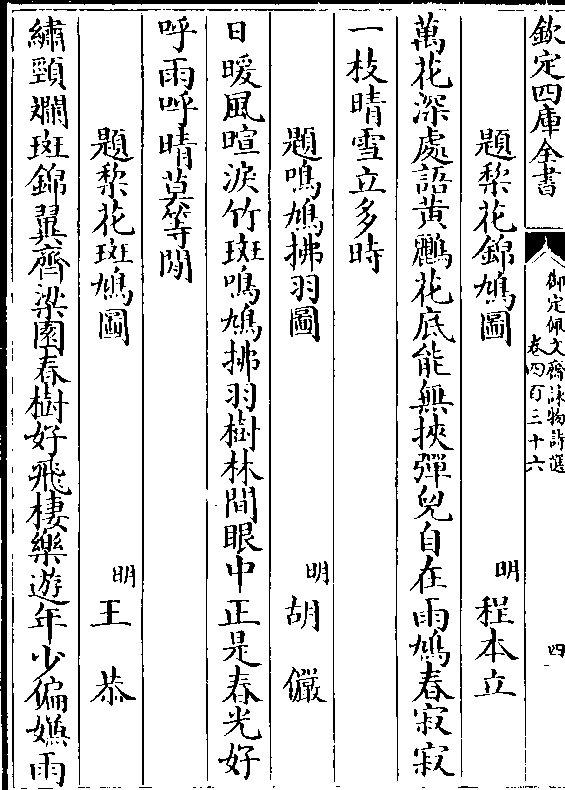 欽定四庫全書
御定佩文齋詠物詩選
卷四百三十六
四
題棃花錦鳩圖 明 程本立
萬花深處語黄鸝花底能無挾彈兒自在雨鳩春寂寂
一枝晴雪立多時
題鳴鳩拂羽圖 明 胡儼
日暖風暄淚竹斑鳴鳩拂羽樹林間眼中正是春光好
呼雨呼晴莫等閒
題棃花斑鳩圖 明 王恭
繡頸斕斑錦翼齊梁園春樹好飛棲樂遊年少偏嫌雨